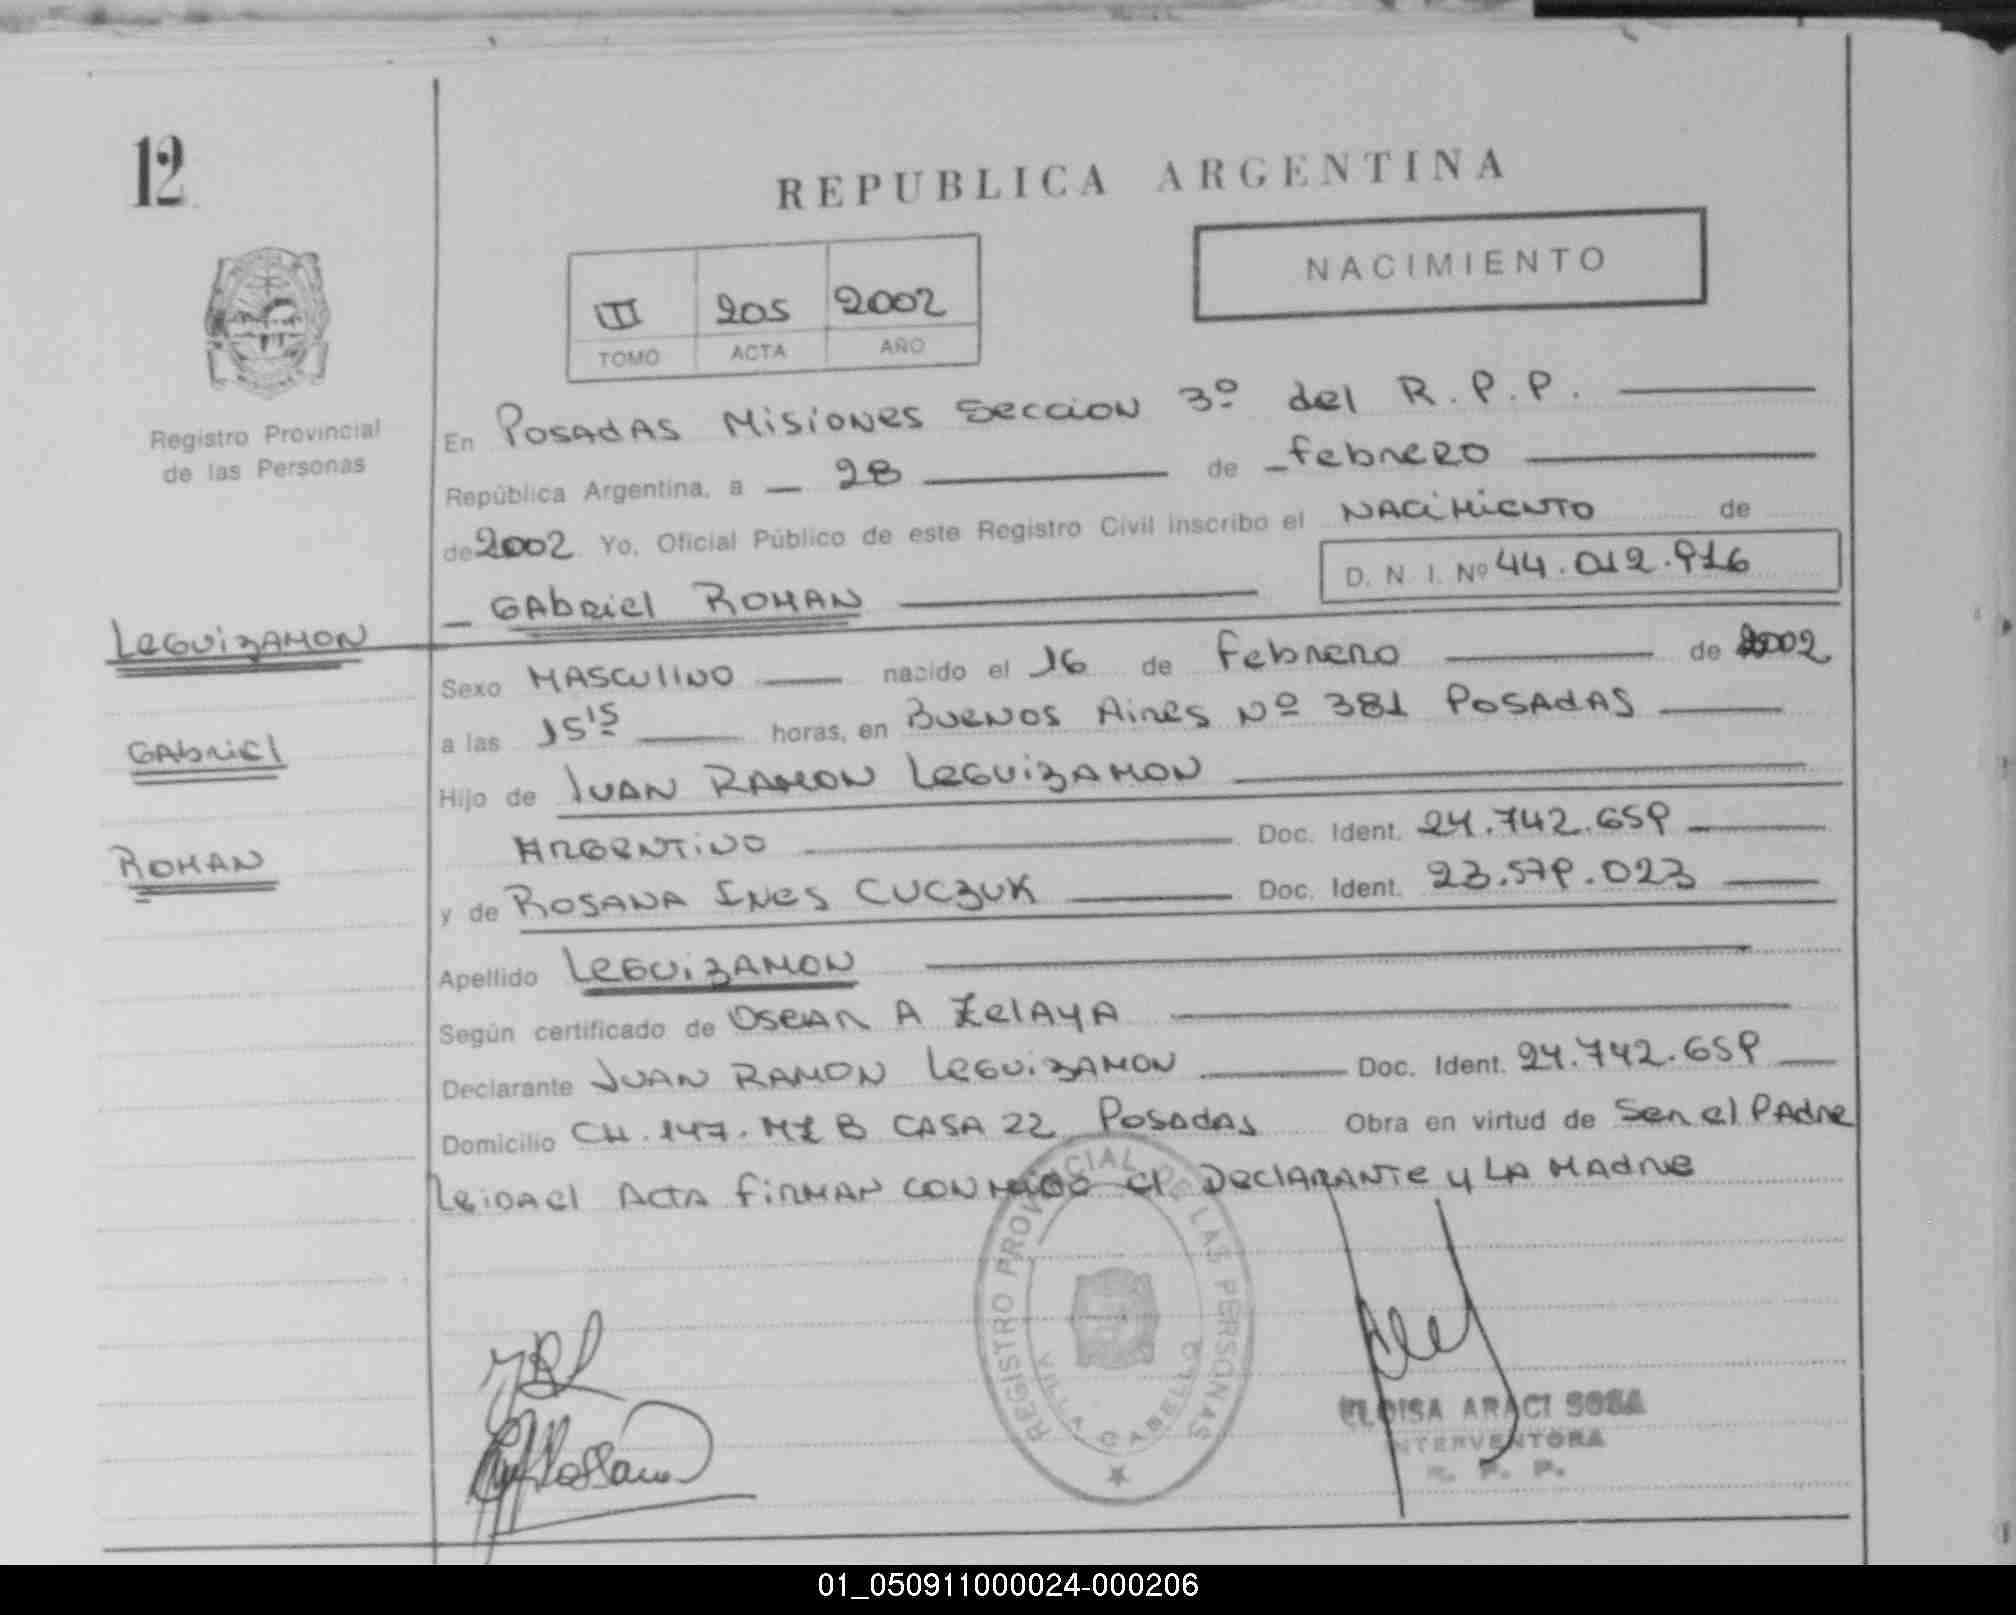 12
REPUBLICA ARGENTINA
NACIMIENTO
III 205 2002
TOMO ACTA AÑO
Registro Provincial
de las Personas
En POSADAS MISIONES Seccion 3º del R.P.P.
República Argentina, a 28 de febrero
de 2002 Yo, Oficial Público de este Registro Civil inscribo el NACIMIENTO de
D. N I. Nº 44.012.916
GABRIEL ROMAN
LEGUIZAMON
GABRIEL
ROMAN
Sexo MASCULINO nacido el 16 de Febrero de 2002
a las 15 15 horas, en BUENOS AIRES Nº 381 POSADAS
Hijo de JUAN RAMON LEGUIZAMON
ARGENTINO Doc. Ident. 24.742.659
y de ROSANA INES CUCZUK Doc. Ident. 23.579.023
Apellido LEGUIZAMON
Según certificado de OSCAR A ZELAYA
Declarante JUAN RAMON LEGUIZAMON Doc. Ident. 24.742.659
Domicilio CH.147.MZ B CASA 22 POSADAS Obra en virtud de Ser el PADRE
Leida el ACTA FIRMAN CONMIGO el DECLARANTE y LA MADRE
REGISTRO PROVINCIAL DE LAS PERSONAS
VILLA CABELLO
ELOISA ARACI SOSA
INTERVENTORA
R. P. P.
01_050911000024-000206